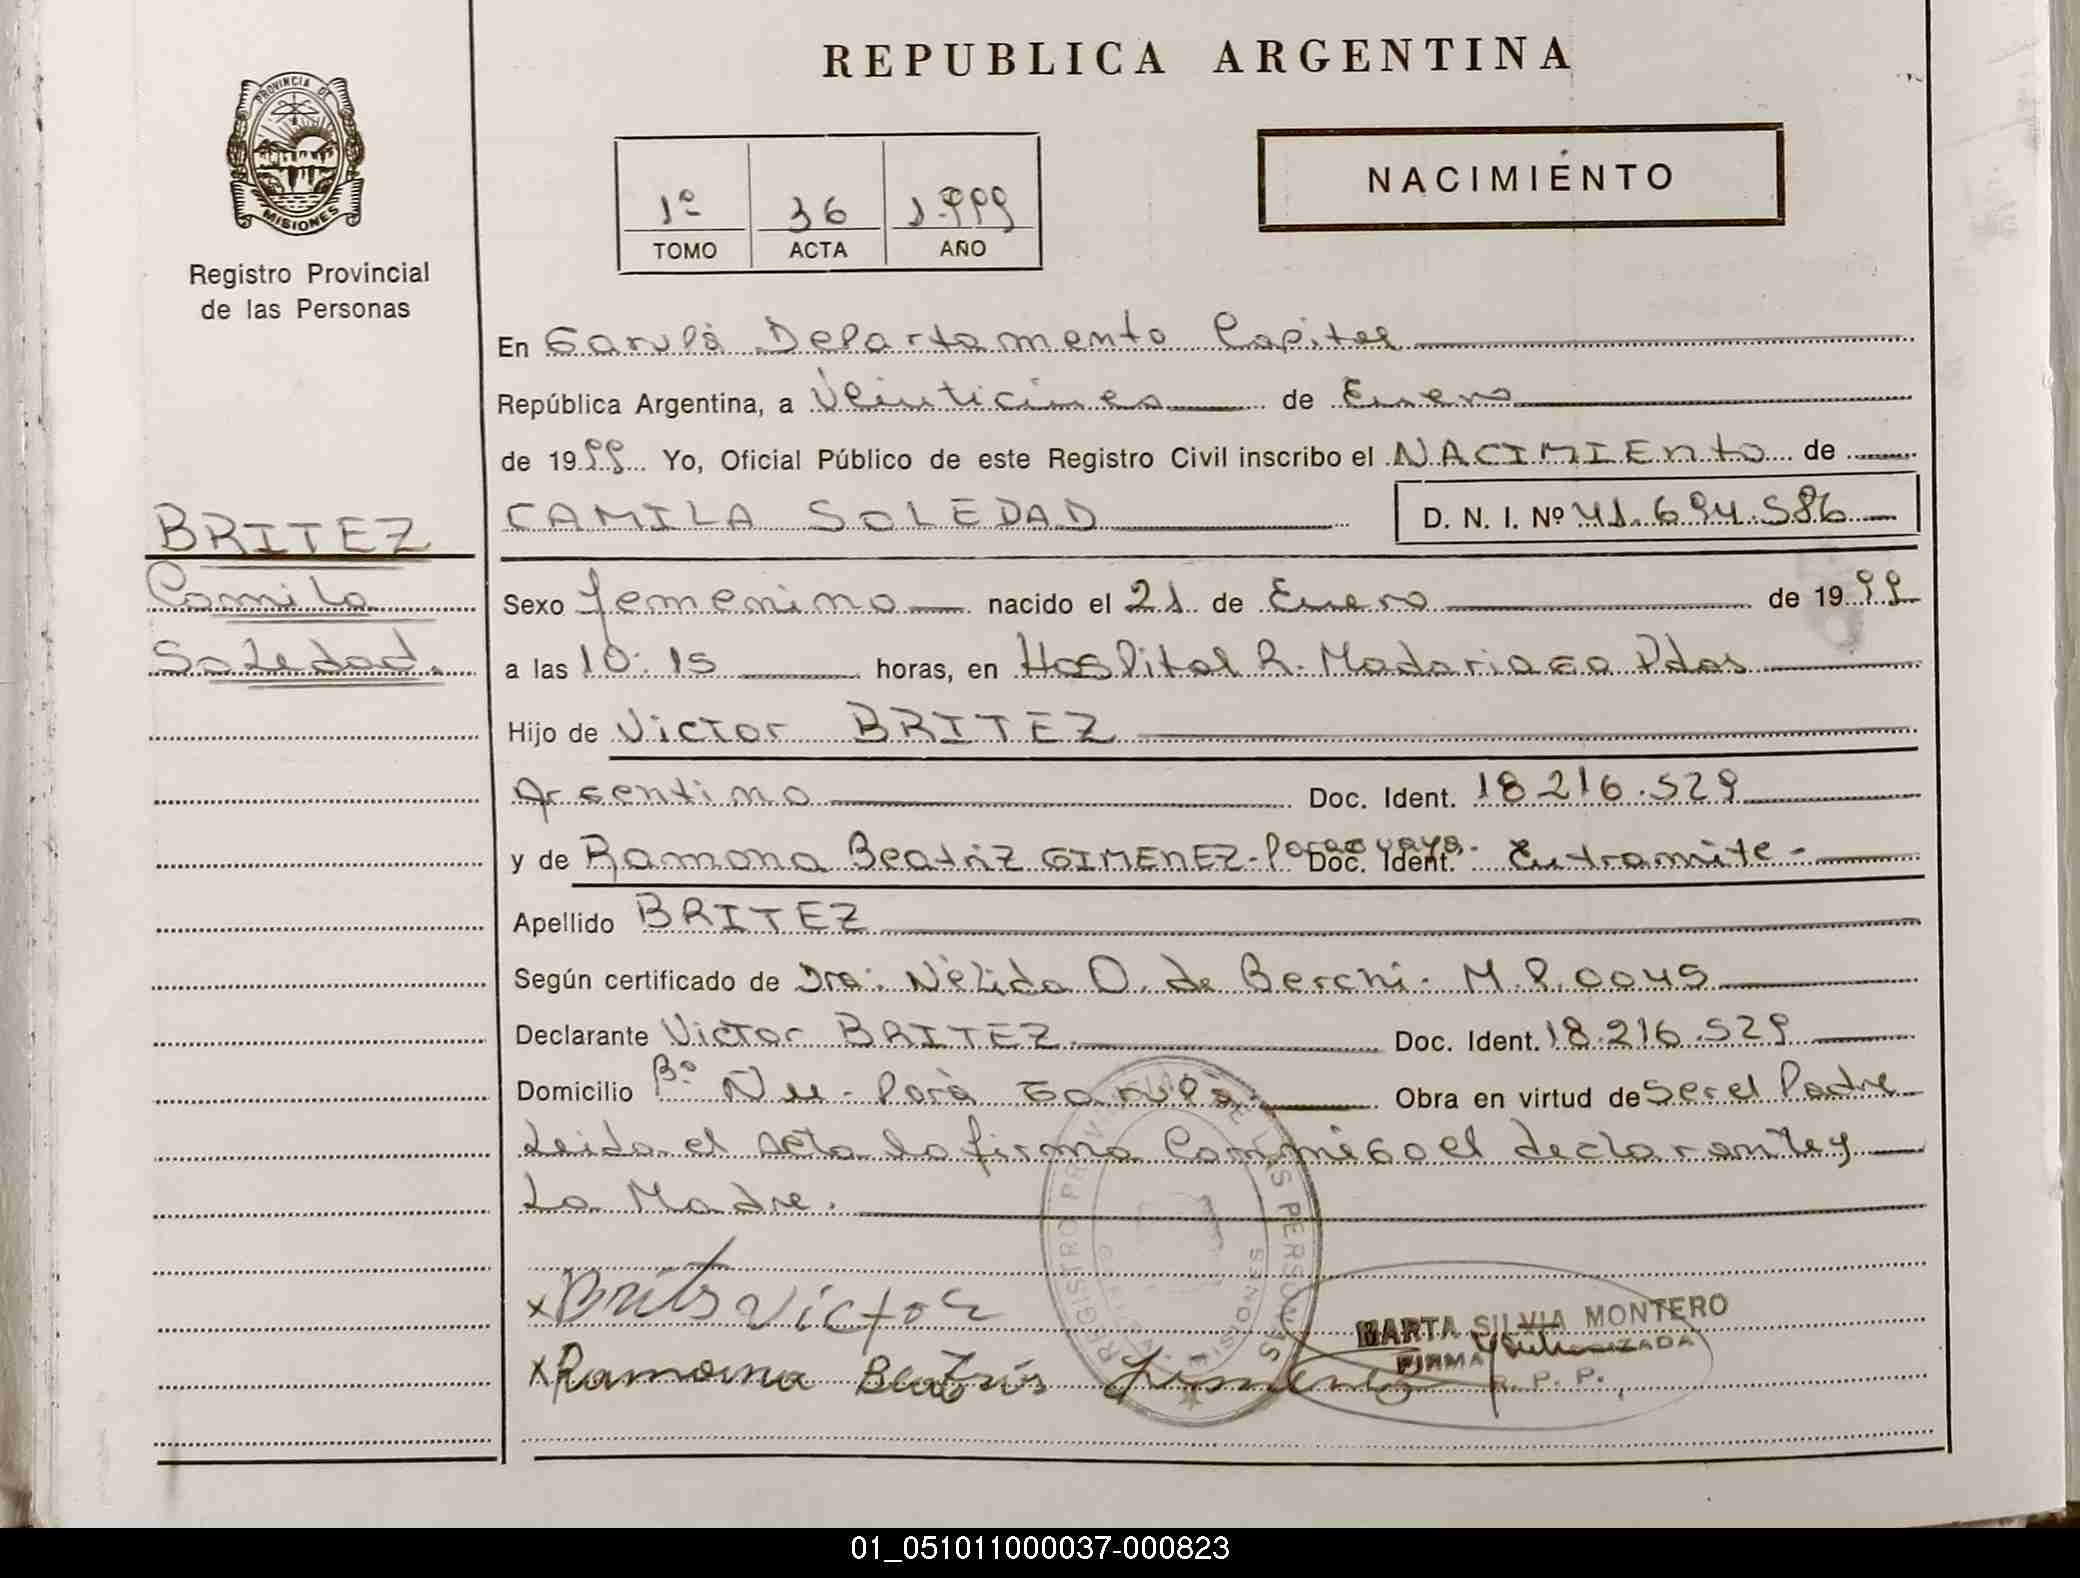 REPUBLICA ARGENTINA
PROVINCIA DE
MISIONES
Registro Provincial
de las Personas
1º 36 1.999
TOMO ACTA AÑO
NACIMIENTO
En Garupá Departamento Capital
República Argentina, a Veinticinco de Enero
de 1999 Yo, Oficial Público de este Registro Civil inscribo el NACIMIENTO de
BRITEZ
Camila
Soledad.
CAMILA SOLEDAD D. N. I. Nº 41.694.586
Sexo femenino nacido el 21 de Enero de 1999
a las 10:15 horas, en Hospital R. Madariaga Pdas
Hijo de Victor BRITEZ
Argentino Doc. Ident. 18.216.529
y de Ramona Beatriz GIMENEZ - Paraguaya - Doc. Ident. Entramite -
Apellido BRITEZ
Según certificado de Dra: Nélida O. de Berchi - M.P. 0045
Declarante Victor BRITEZ Doc. Ident. 18.216.529
Domicilio Bº Ñu - Porá Garupá Obra en virtud de Ser el Padre
Leida el acta la firma Conmigo el declarante y
La Madre.
REGISTRO PROVINCIAL DE LAS PERSONAS
MISIONES
x Victor
MARTA SILVIA MONTERO
FIRMA AUTORIZADA
R. P. P.
x Ramona Beatris Gimenez
01_051011000037-000823